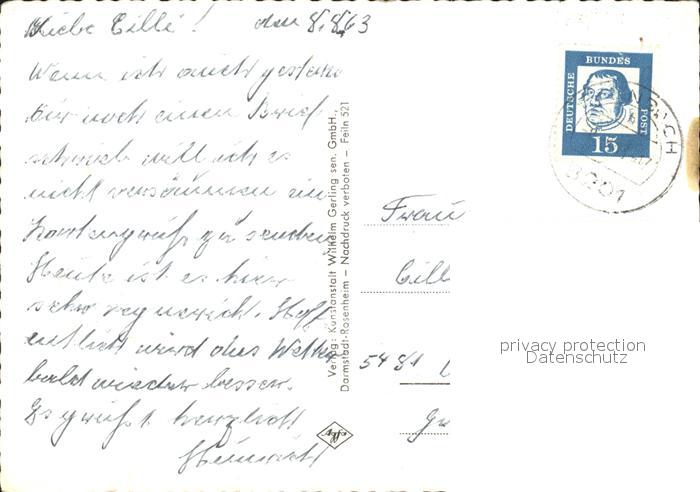 Liebe Cilli! den 8.8.63
Wenn ich auch gestern
Dir noch einen Brief
schrieb will ich es
nicht versäumen ein
Kartengruß zu senden
Heute ist es hier
sehr regnerich. Hoff
entlich wird das Wetter
bald wieder besser.
Es grüßt herzlich
Heinrich
Verlag: Kunstanstalt Wilhelm Gerling sen. GmbH.,
Darmstadt-Rosenheim — Nachdruck verboten — Feiln 521
Agfa
DEUTSCHE BUNDES POST
15
8201
Frau
Cill
5481
privacy protection
Datenschutz